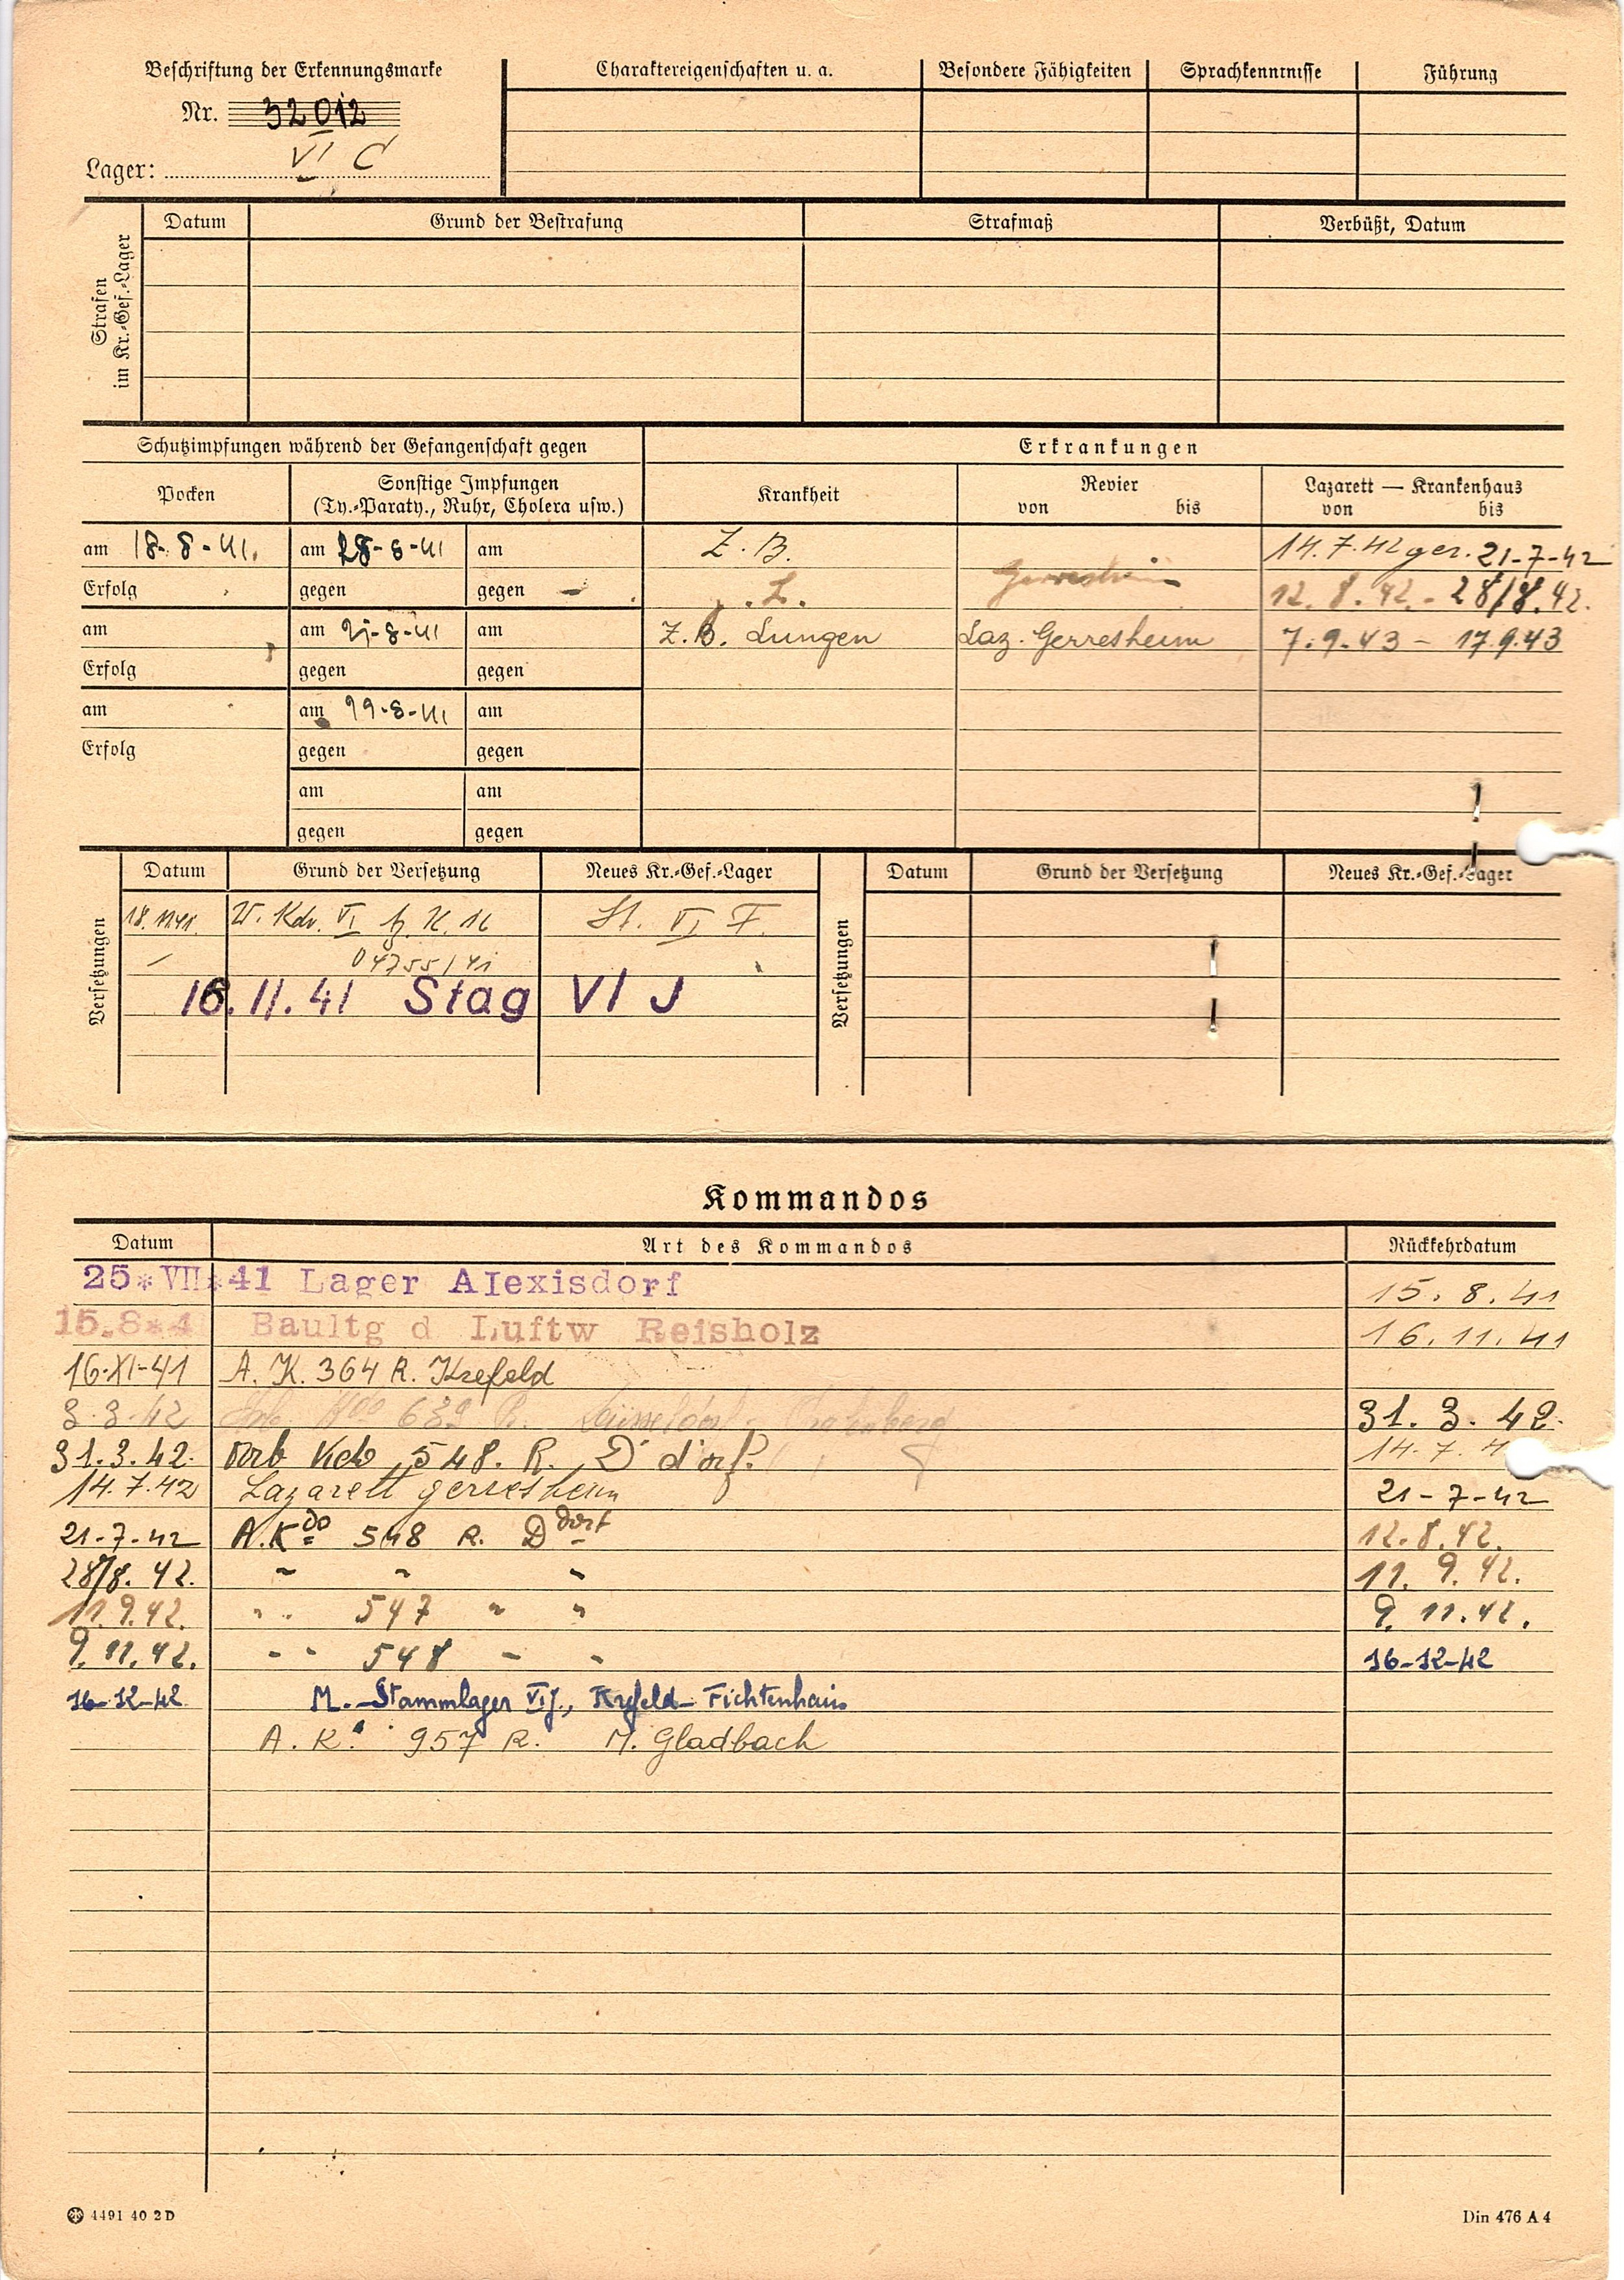 Beschriftung der Erkennungsmarke
Nr. 32012
Lager: VI C
Charaktereigenschaften u. a.
Besondere Fähigkeiten
Sprachkenntnisse
Führung
Strafen im Kr.-Gef.-Lager
Datum
Grund der Bestrafung
Strafmaß
Verbüßt, Datum
Schutzimpfungen während der Gefangenschaft gegen
Erkrankungen
Pocken
Sonstige Impfungen
(Ty.-Paraty., Ruhr, Cholera usw.)
Krankheit
Revier
von bis
Lazarett — Krankenhaus
von bis
am 18.8-41. am -8-41 am
Z. B. 14.7.42 ger. 21-7-42
Erfolg gegen gegen
L. Gerresheim 12.8.42.- 28/8.42.
am am -8-41 am
Z.B. Lungen Laz. Gerresheim 7.9.43 - 17.9.43
Erfolg gegen gegen
am am -8-41 am
Erfolg gegen gegen
am am
gegen gegen
Versetzungen
Datum Grund der Versetzung Neues Kr.-Gef.-Lager
18.11.41. W. Kdr. VI K. 16 St. VI F.
04755/41
16.11.41 Stag VI J
Versetzungen
Datum Grund der Versetzung Neues Kr.-Gef.-Lager
Kommandos
Datum Art des Kommandos Rückkehrdatum
25*VII*41 Lager Alexisdorf 15.8.41
15.8*4 Baultg d Luftw Reisholz 16.11.41
16-XI-41 A. K. 364 R. Krefeld
3.3.42 639 R. Düsseldorf 31.3.42.
31.3.42. Arb Kdo 548. R. D'dorf. 14.7.4
14.7.42 Lazarett gerresheim 21-7-42
21-7-42 A.Kdo 548 R. Ddorf 12.8.42.
28/8.42. " " " 11.9.42.
11.9.42. " " 547 " " 9.11.42.
9.11.42. " " 548 " " 16-12-42
16-12-42 M.-Stammlager VI J., Krefeld-Fichtenhain
A. K. 957 R. M. Gladbach
4491 40 2 D
Din 476 A 4